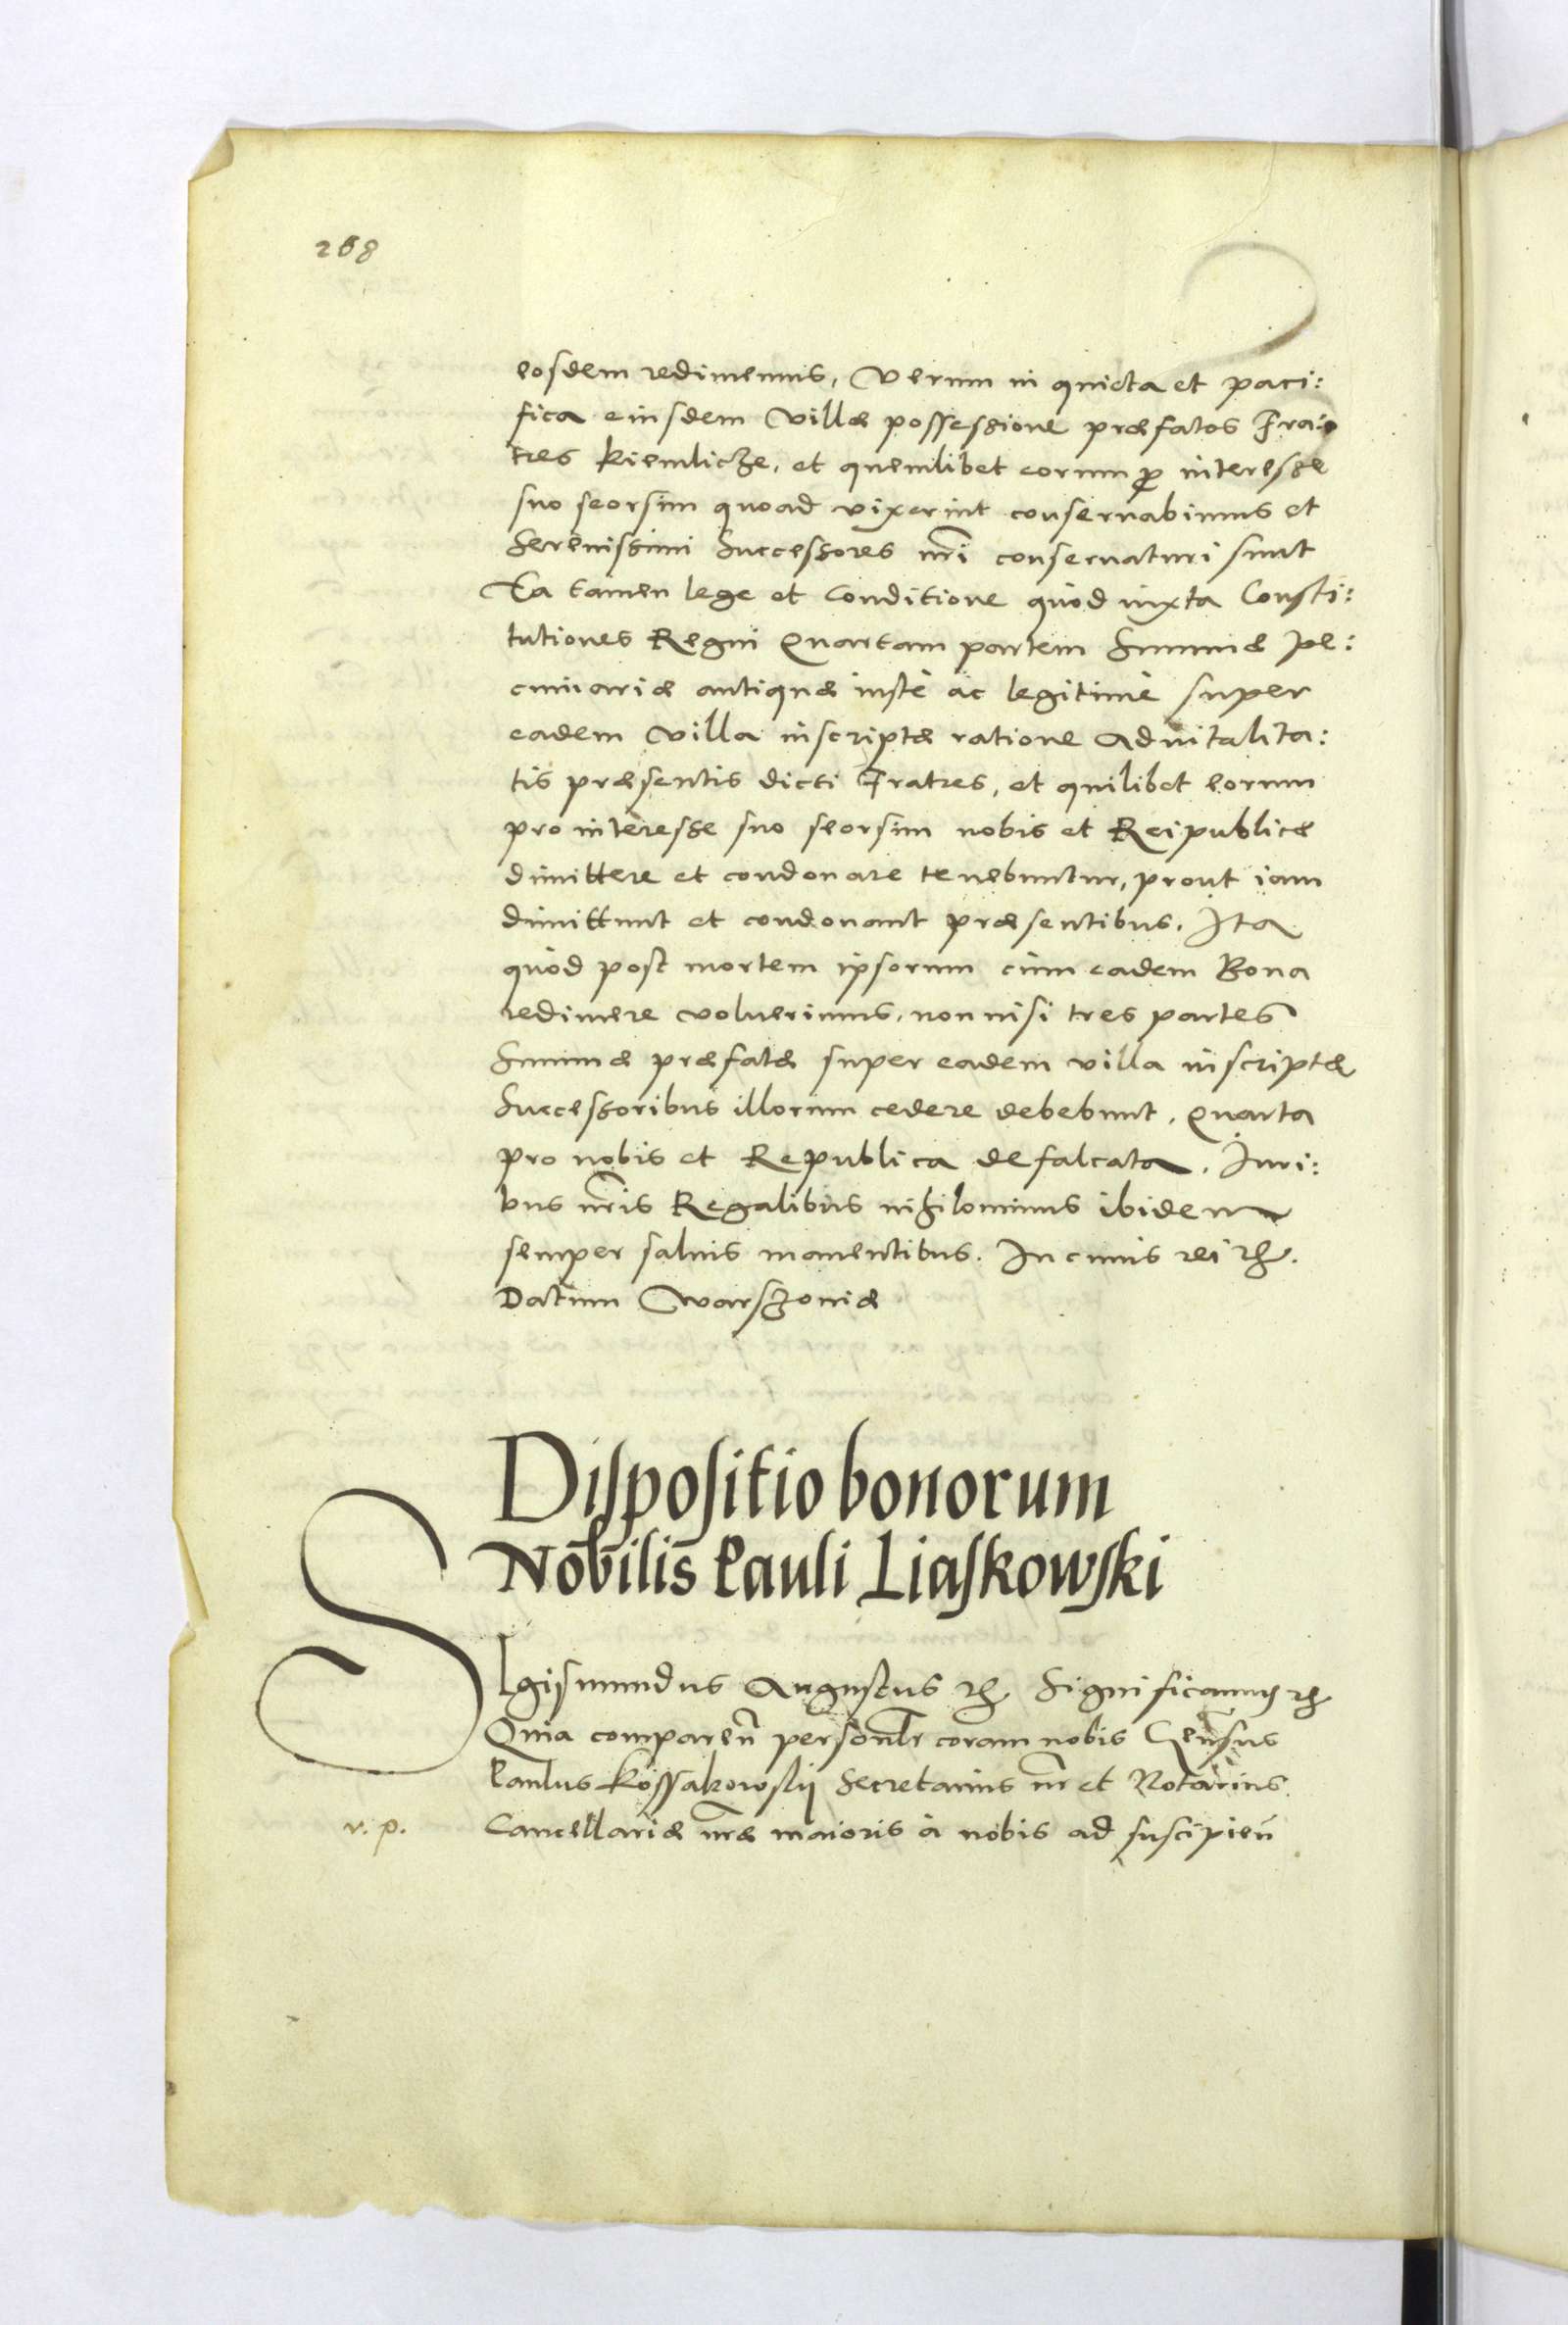 268
eosdem redimemus, Verum in quieta et paci:
fica eiusdem Villæ possessione præfatos Fra:
tres Kiemlicze, et quemlibet eorum ꝓ interesse
suo seorsim quoad vixerint conseruabimus et
Serenissimi Successores nr̃i conseruaturi sunt
Ea tamen lege et conditione quòd iuxta Consti:
tutiones Regni Quartam partem Summæ pe:
cuniariæ antiquæ iustè ac legitimè super
eadem Villa inscriptæ ratione aduitalita:
tis præsentis dicti Fratres, et quilibet eorum
pro interesse suo seorsim nobis et Reipublicæ
dimittere et condonare tenebuntur, prout iam
dimittunt et condonant præsentibus. Ita
quòd post mortem ipsorum cùm eadem Bona
redimere voluerimus, non nisi tres partes
Summæ præfatæ super eadem villa inscriptæ
Successoribus illorum cedere debebunt, Quarta
pro nobis et Republica defalcata. Juri:
bus nr̃is Regalibus nihilominus ibidem
semper saluis manentibus. In cuius rei ꝛc̃.
Datum Warszouiæ
Dispositio bonorum
Nob̃ilis Pauli Liaskowski
SIgismundus Augustus ꝛc̃ Significamus ꝛc̃
Quia compareñ personlr̃ coram nobis Geñsus
Paulus Kossakowskij Secretarius nr̃ et Notarius
v. p. Cancellariæ nr̃æ maioris à nobis ad suscipieñ